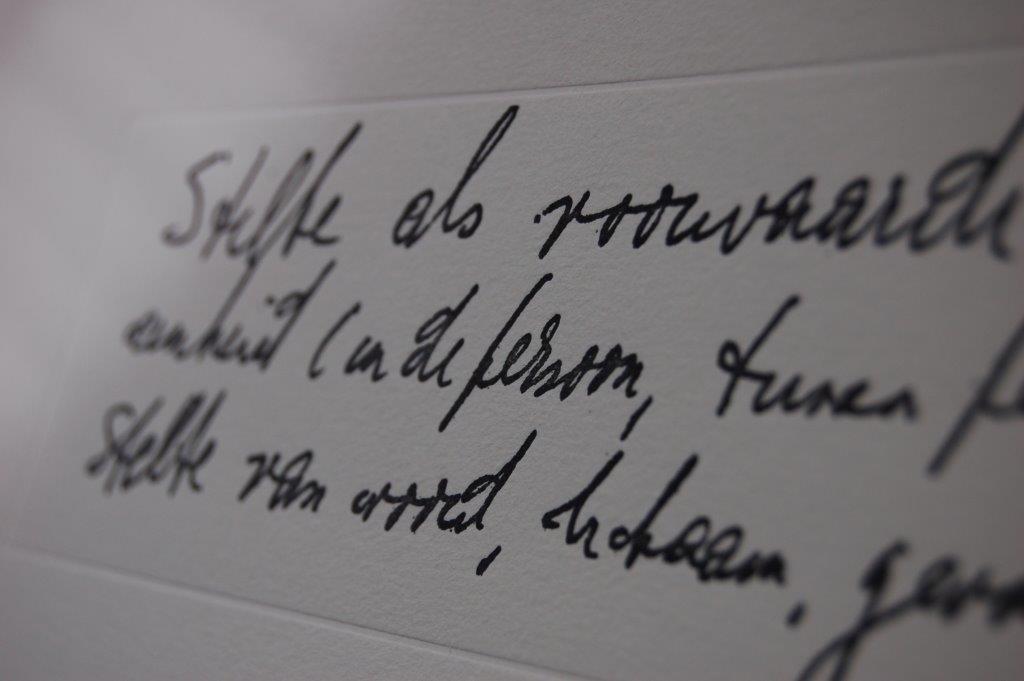 Stilte als voorwaarde
eenheid (in de persoon, tussen pe
Stilte van woord, lichaam, gevo